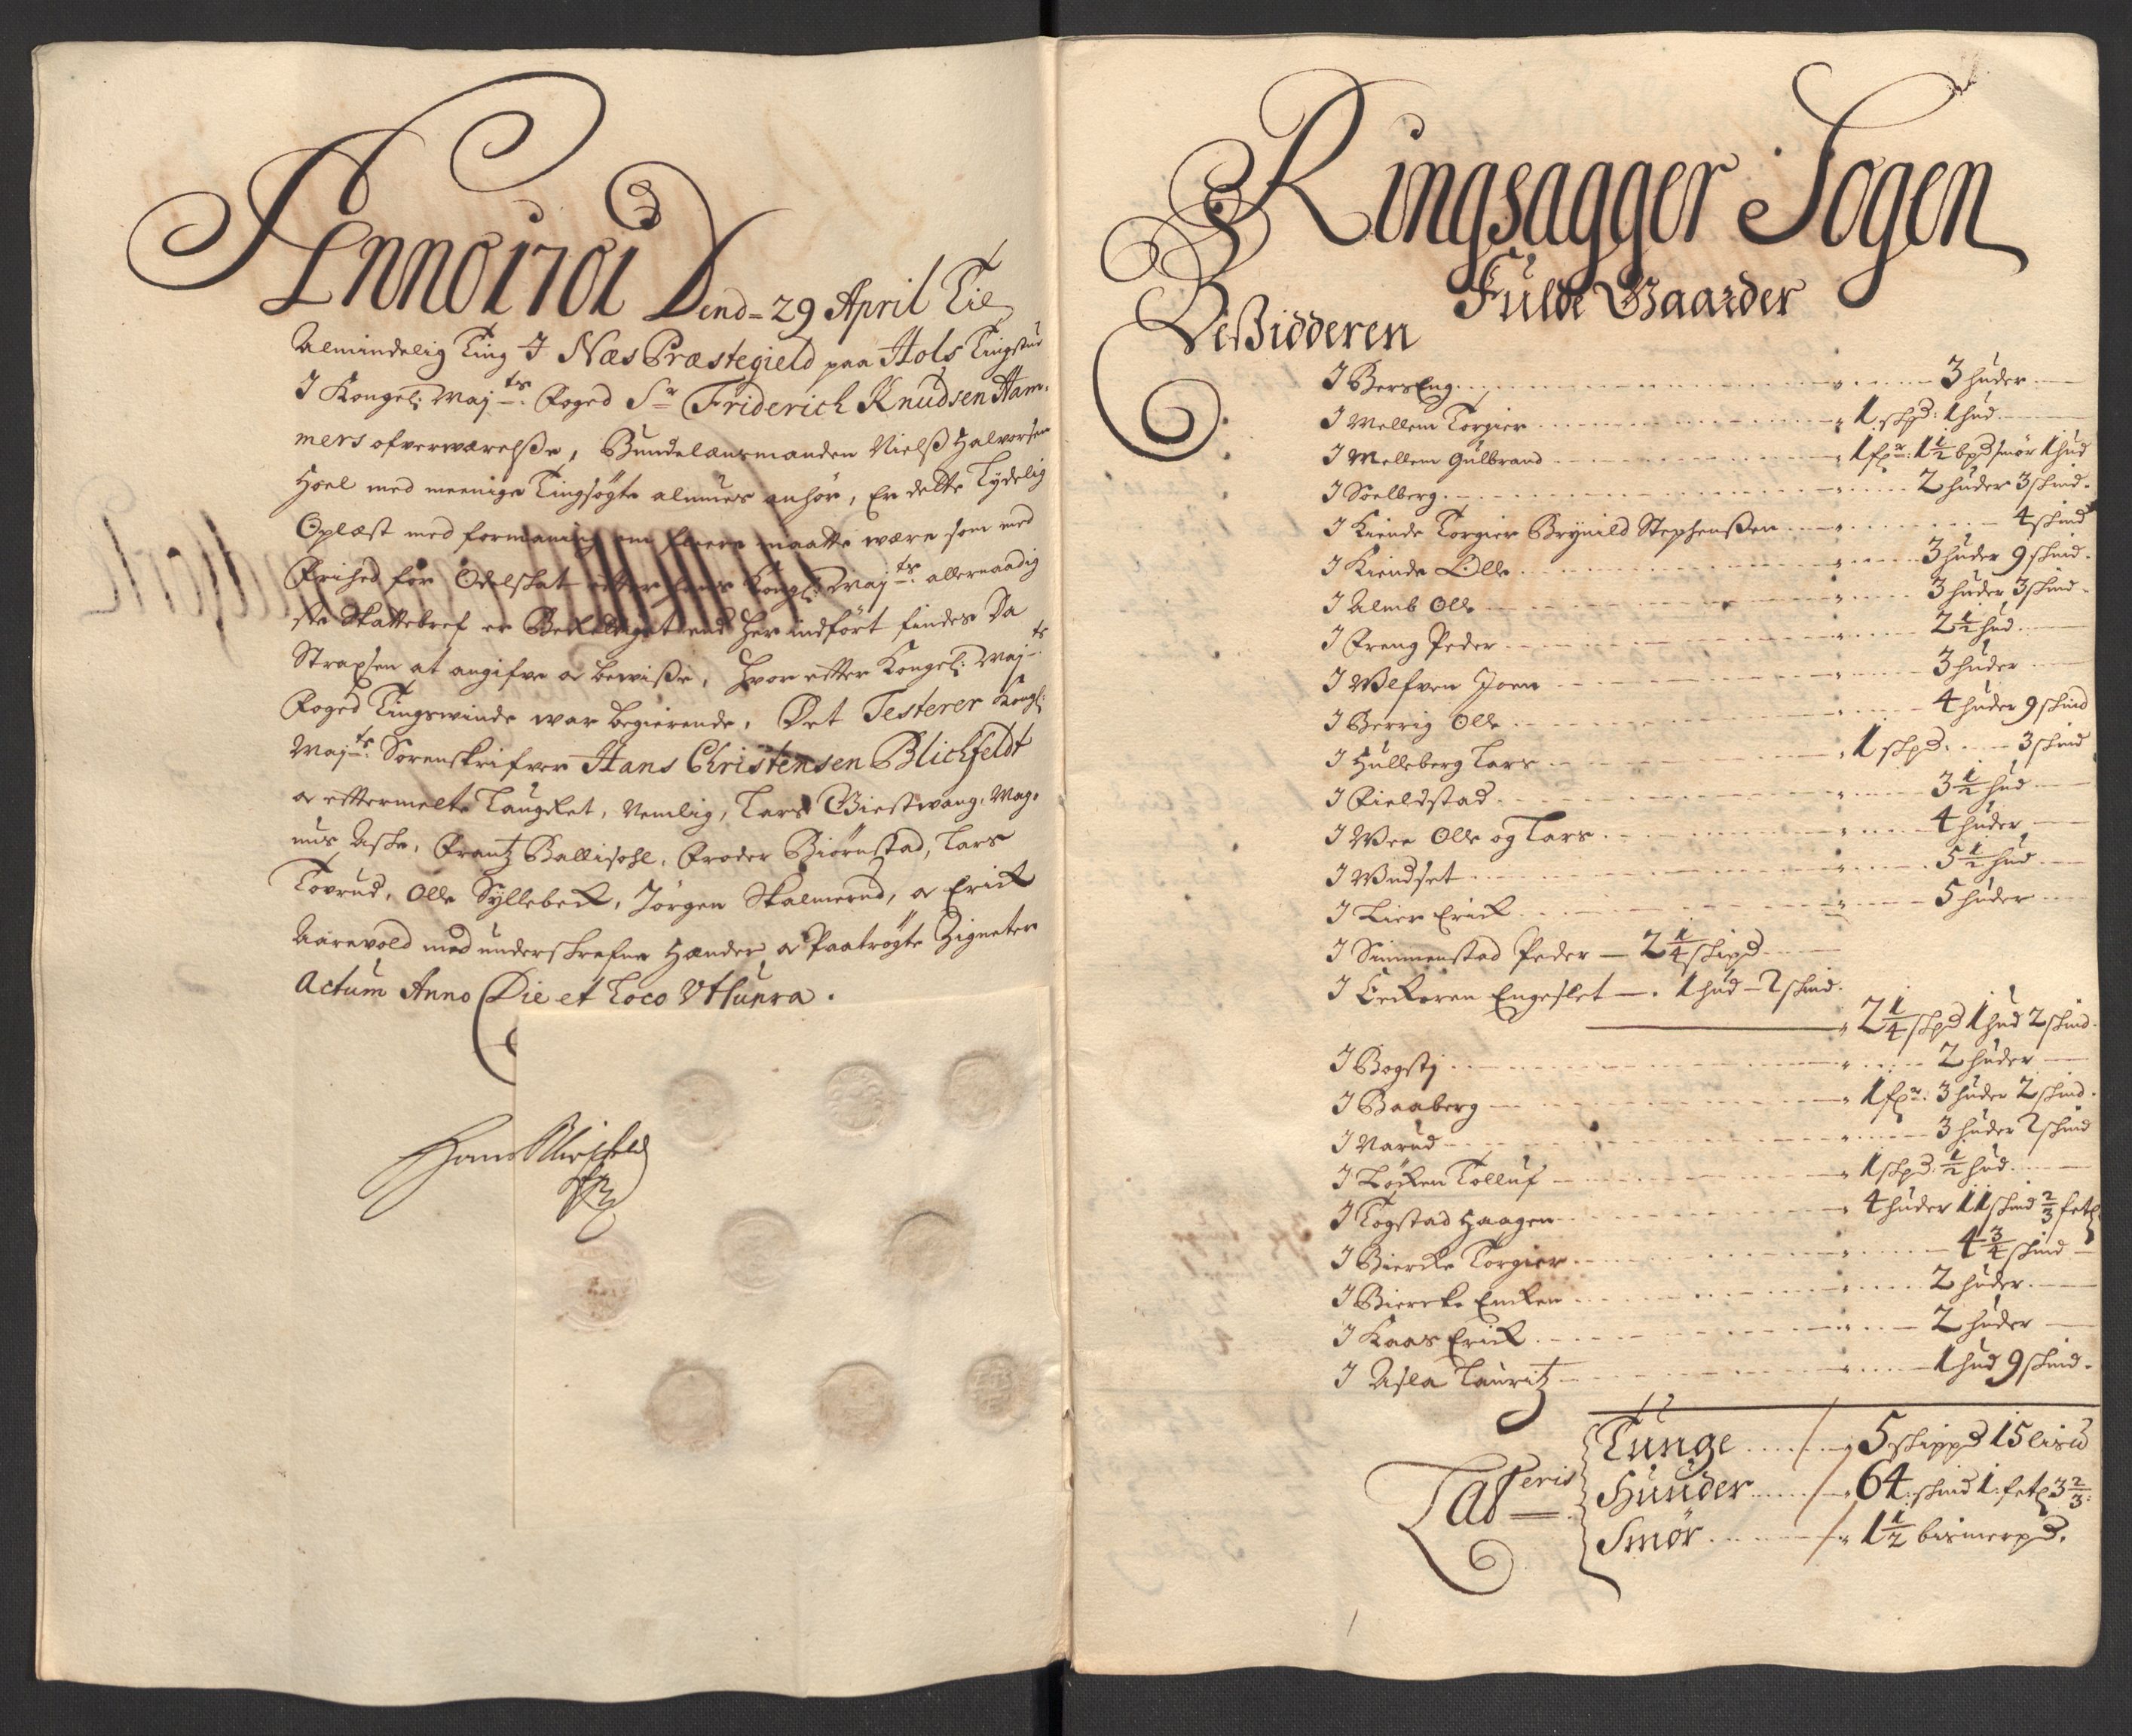 Anno 1701 Dend= 29 April Til
Almindelig Ting I Næs Præstegield paa Hols Tingstue
I Kongel: Maj:ts Foged Sr Friderich Knudsen Ham-
mers ofverwærelsse, Bundelænsmanden Nielss Halvorsen
Hoel med meenige Tingsøgte almues anhør, Er dette Tydelig
Oplæst med formaning om fleere maatte være som med
Frihed for Odelskat efter hans Kongl: Maj:ts allernaadig
ste Skattebref er Benaadiget end her indført findes Da
Straxsen at angifve og bewisse, Hvor efter Kongel: Maj:ts
Foged Tingswinde war begierende, Det Testerer Kongl:
Maj:ts Sorenskrifver Hans Christensen Blichfeldt
og eftermelte Laugret, Nemlig, Lars Giestwang, Mag-
nus Aske, Frantz Ballishol, Froder Biørnstad, Lars
Tovrud, Olle Syllebek, Jørgen Skalmerud, og Erick
Aarevold med underskrefne Hænder og Paatrøgte Zigneter
Actum Anno Die et Loco Ut Supra.
Hans Blichfeld
Ringsagger Sogen
Fulde Gaarder
Beßidderen
I BersEng 3 huder
I Mellem Torgier 1 skpd: 1 hud
I Mellem Gulbrand 1 fr: 1 1/2 bpd smør 1 hud
I Soelberg 2 huder 3 skind
I Kiende Torgier Brynild Stephenßen 4 skind
I Kiende Olle 3 huder 9 skind
I Almb Olle 3 huder 3 skind
I Freng Peder 2 1/2 hud
I Ulfven Joen 3 huder
I Berrig Olle 4 huder 9 skind
I Hulleberg Lars 1 skpd: 3 skind
I Fieldstad 3 1/2 hud
I Wee Olle og Lars 4 huder
I Wudset 5 1/2 hud
I Lier Erick 5 huder
I Simmenstad Peder — 2 1/4 skipd
I Leckeren Engeslet — 1 hud — 2 skind
2 1/4 skpd 1 hud 2 skind
I Bogstj 2 huder
I Baaberg 1 fr: 3 huder 2 skind
I Narud 3 huder 2 skind
I Løcken Tolluf 1 skpd: 1/2 hud
I Togstad Haagen 4 huder 11 skind 2/3 fetl
I Biercke Torgier 4 3/4 skind
I Biercke Encken 2 huder
I Kaas Erick 2 huder
I Asla Lauritz 1 hud 9 skind
Lateris
Tunge 5 skippd 15 lispd
Huuder 64: skind 1: fetl 3 2/3:
Smør 1 1/2 bismerpd.